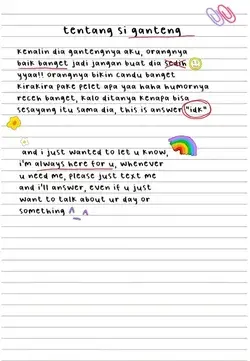 tentang si ganteng
kenalin dia gantengnya aku, orangnya
baik banget jadi jangan buat dia sedih
yyaa!! orangnya bikin candu banget
kirakira pake pelet apa yaa haha humornya
receh banget, kalo ditanya kenapa bisa
sesayang itu sama dia, this is answer "idk"
and i just wanted to let u know,
i'm always here for u, whenever
u need me, please just text me
and i'll answer, even if u just
want to talk about ur day or
something ^_^